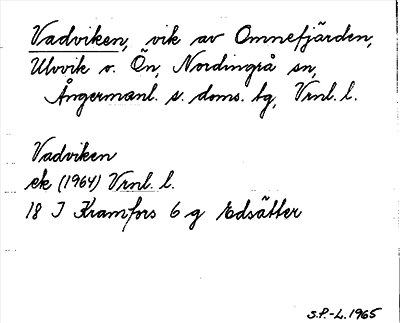 Vadviken, vik av Omnefjärden,
Ulvvik o. Ön, Nordingrå sn,
Ångermanl. s. doms. tg, Vrnl. l.
Vadviken
ek (1964) Vrnl. l.
18 J Kramfors 6 g Edsätter
S.P.-L. 1965